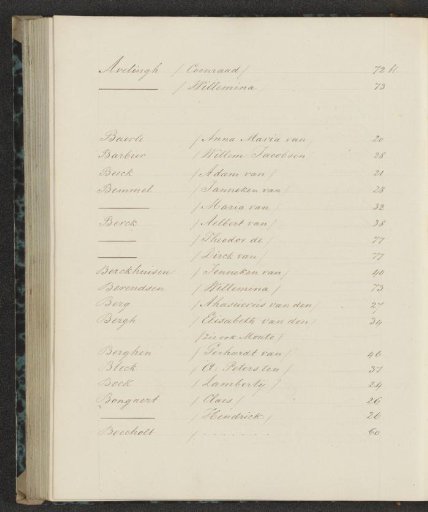 Avelingh / Coenraad / 72
——— / Willemina 73
Baerle / Anna Maria van / 20
Barbier / Willem Jacobsen 28
Beeck / Adam van / 21
Bemmel / Janneken van / 28
——— / Maria van / 32
Berck / Aelbert van / 38
——— / Theodor de / 77
——— / Dirck van / 77
Berckhuisen / Jenneken van / 40
Berendsen / Willemina / 73
Berg / Ahasuerus van den / 27
Bergh / Elisabeth van den / 34
/ Zie ook Monte /
Berghen / Gerhardt van / 46
Bleck / A. Petersten / 37
Bock / Lambertij / 24
Bongaert / Claes / 26
——— / Hendrick / 26
Bocholt / ........ 60